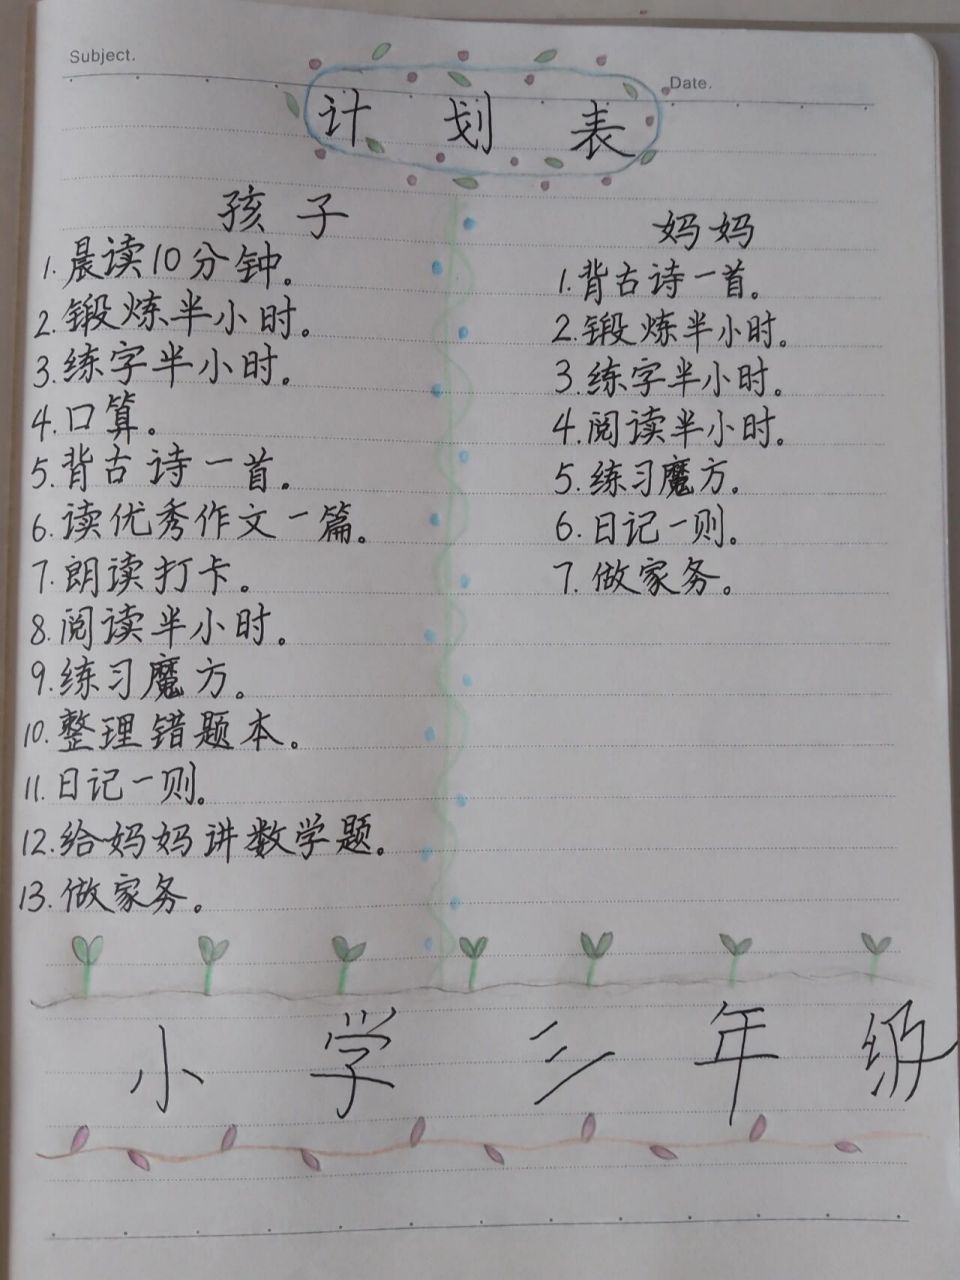 Subject.
Date.
计划表
孩子
1.晨读10分钟。
2.锻炼半小时。
3.练字半小时。
4.口算。
5.背古诗一首。
6.读优秀作文一篇。
7.朗读打卡。
8.阅读半小时。
9.练习魔方。
10.整理错题本。
11.日记一则。
12.给妈妈讲数学题。
13.做家务。
妈妈
1.背古诗一首。
2.锻炼半小时。
3.练字半小时。
4.阅读半小时。
5.练习魔方。
6.日记一则。
7.做家务。
小学三年级